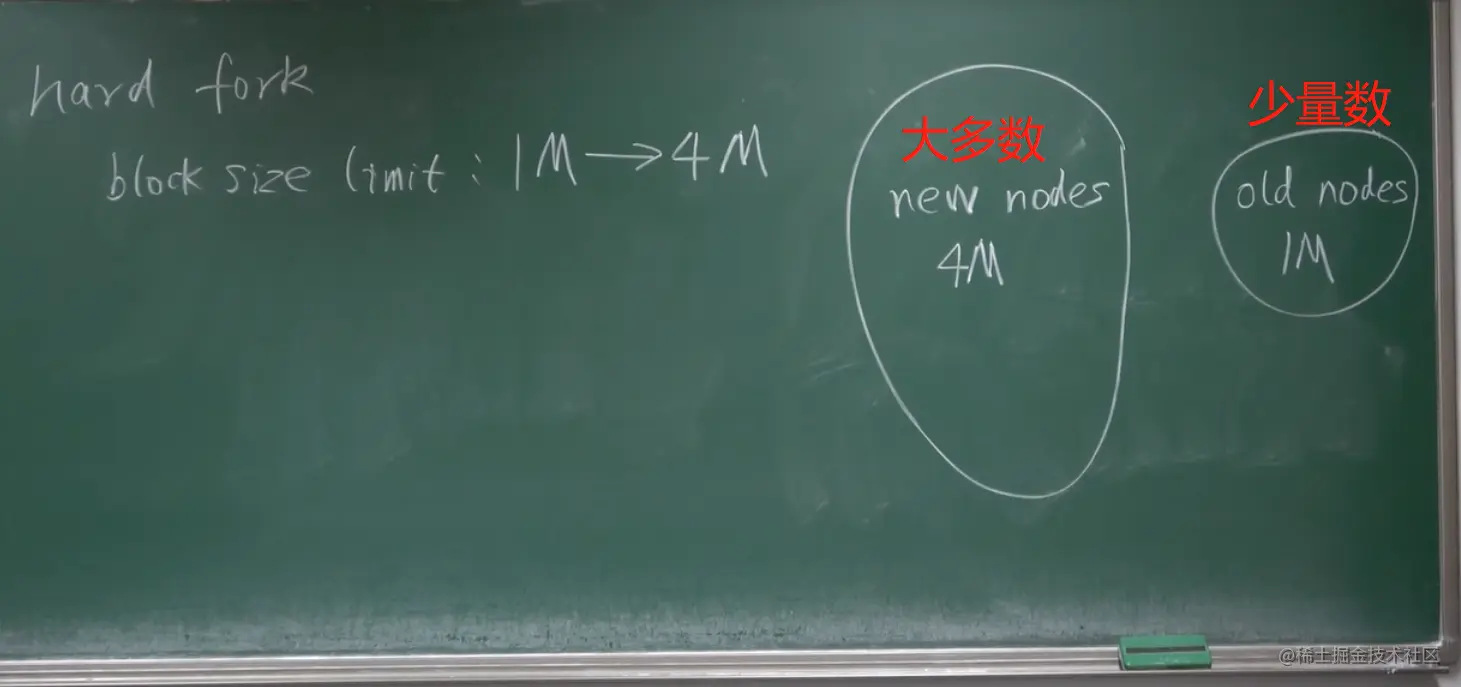 hard fork
block size limit: 1M→4M
大多数
new nodes
4M
少量数
old nodes
1M
@稀土掘金技术社区